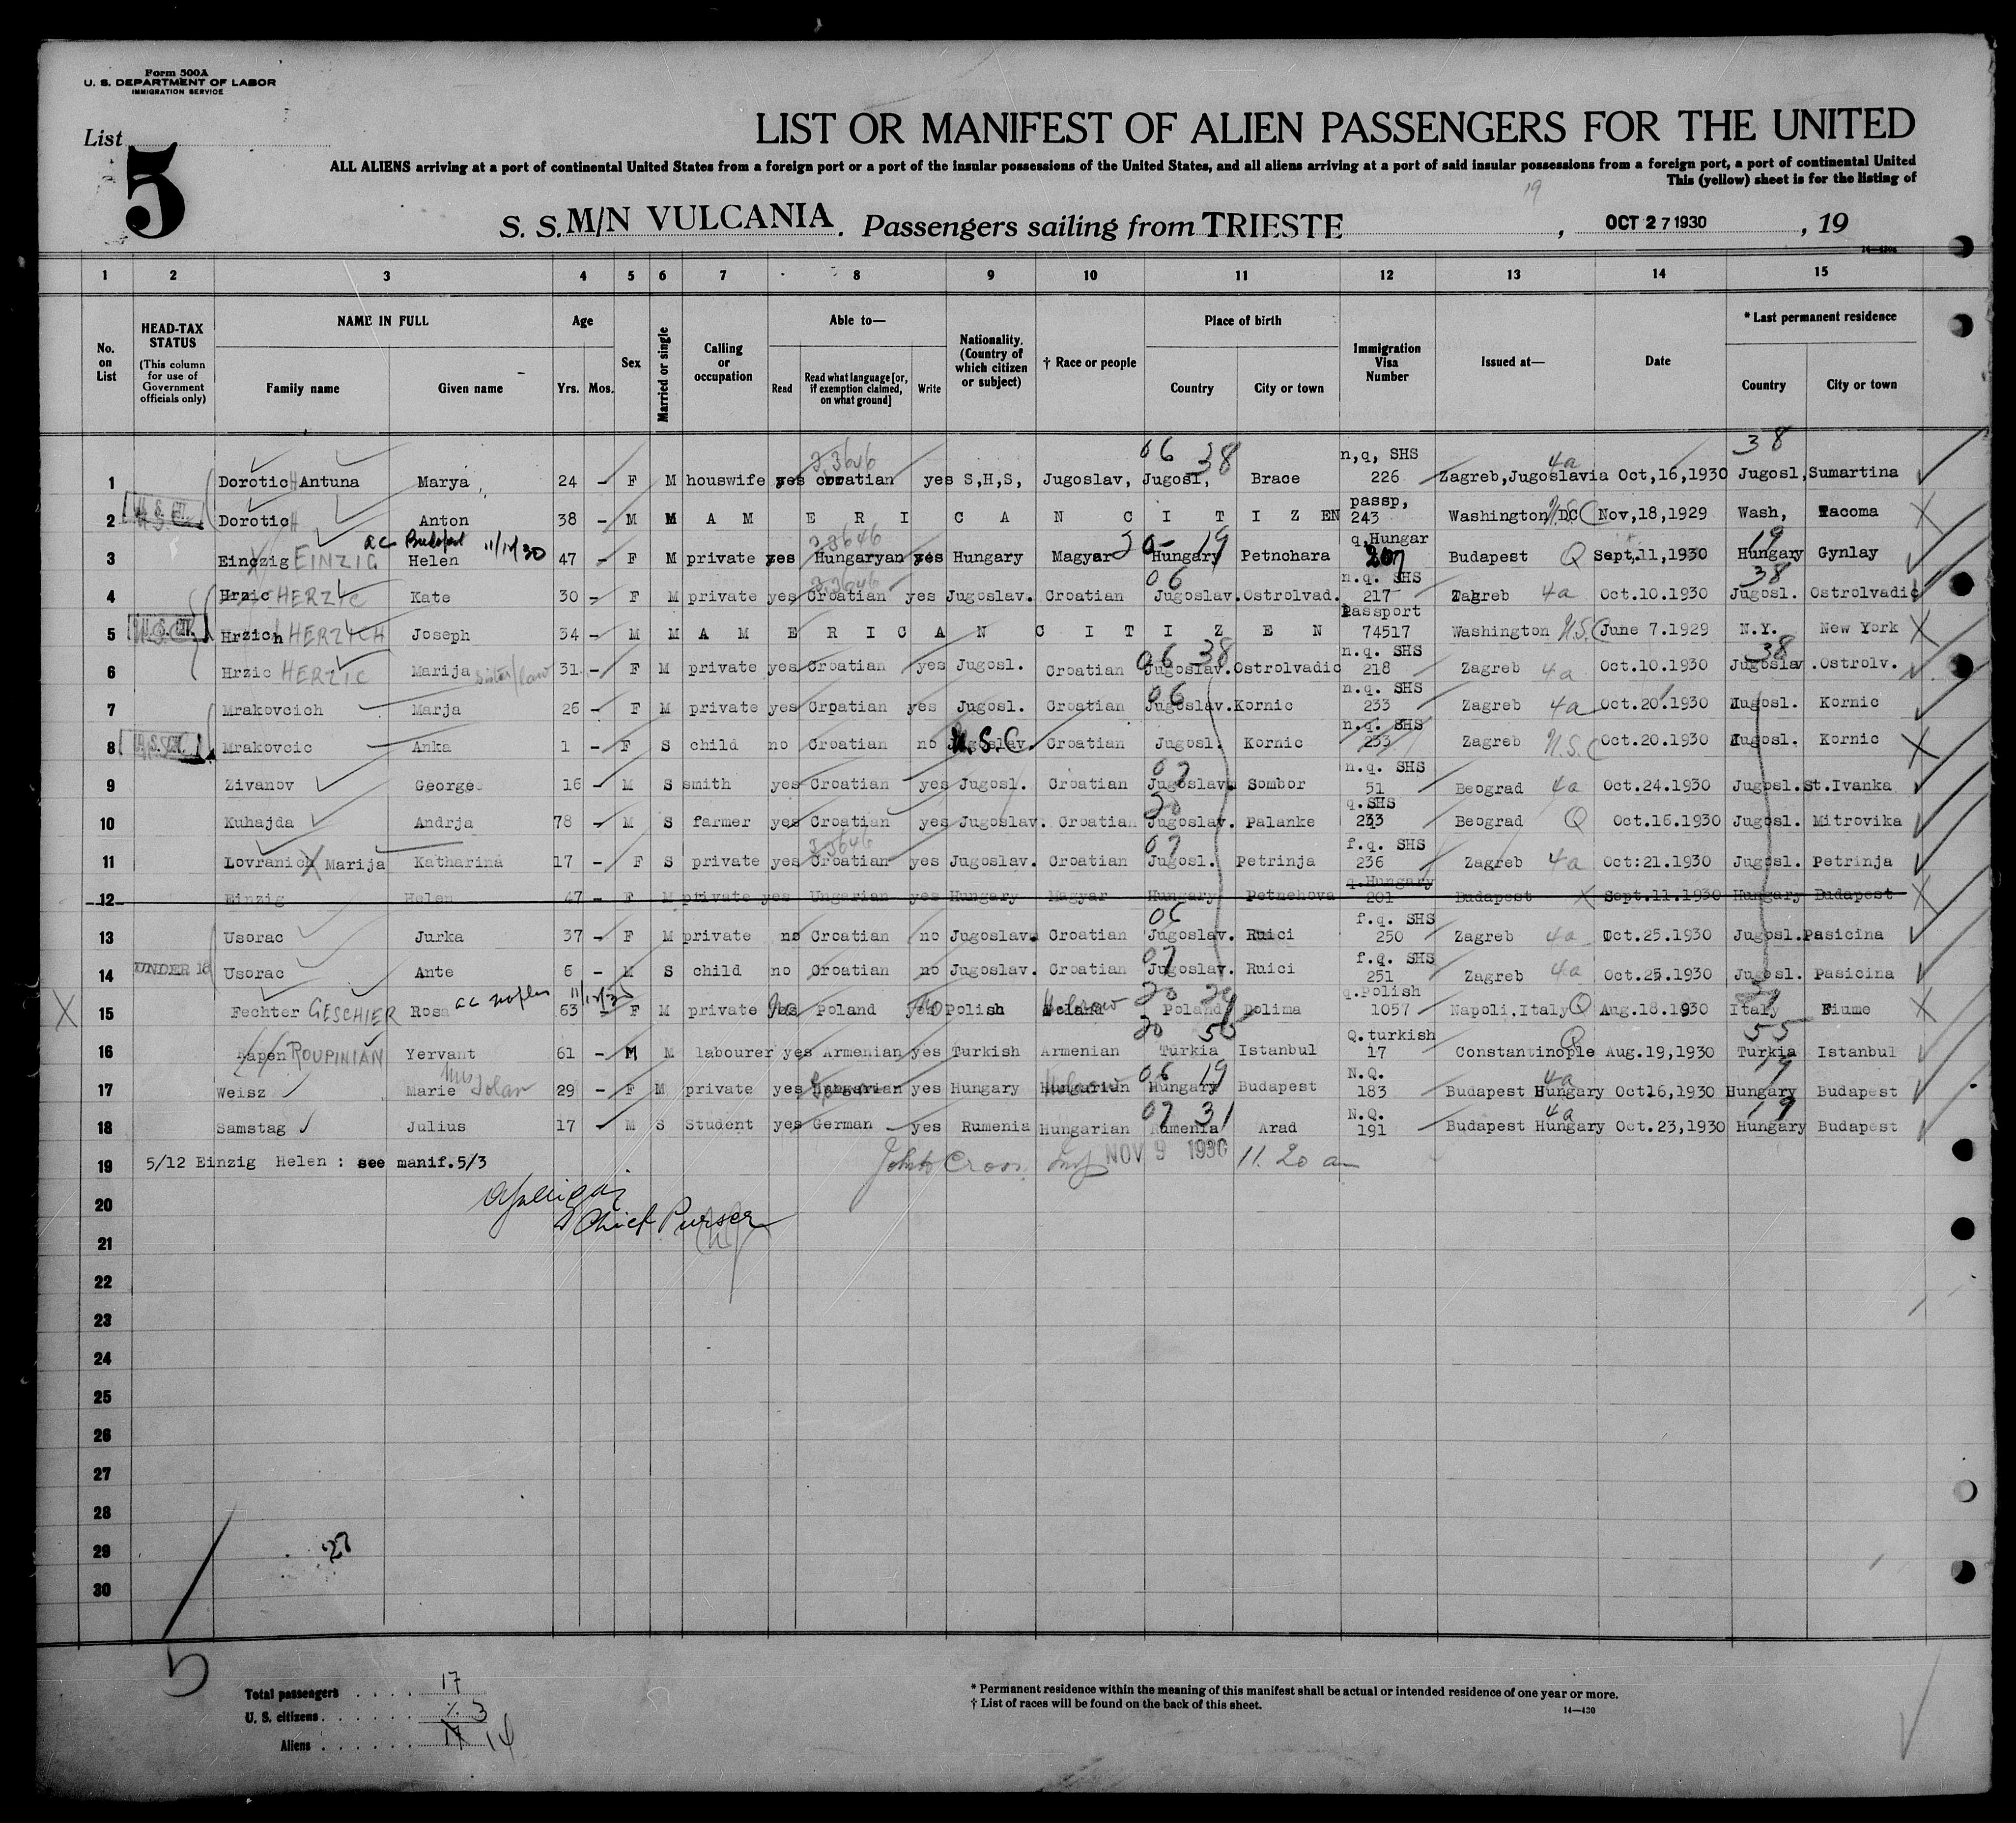 Form 500A
U. S. DEPARTMENT OF LABOR
IMMIGRATION SERVICE
List 5
LIST OR MANIFEST OF ALIEN PASSENGERS FOR THE UNITED
ALL ALIENS arriving at a port of continental United States from a foreign port or a port of the insular possessions of the United States, and all aliens arriving at a port of said insular possessions from a foreign port, a port of continental United
This (yellow) sheet is for the listing of
19
S. S. M/N VULCANIA. Passengers sailing from TRIESTE, OCT 27 1930, 19
1 2 3 4 5 6 7 8 9 10 11 12 13 14 15
No. on List
HEAD-TAX STATUS
(This column for use of Government officials only)
NAME IN FULL
Family name Given name
Age
Yrs. Mos.
Sex
Married or single
Calling or occupation
Able to—
Read Read what language [or, if exemption claimed, on what ground] Write
Nationality. (Country of which citizen or subject)
† Race or people
Place of birth
Country City or town
Immigration Visa Number
Issued at—
Date
* Last permanent residence
Country City or town
06 38 n,q, SHS 4a 38
1 Dorotic H Antuna Marya, 24 - F M houswife yes croatian yes S,H,S, Jugoslav, Jugosl, Brace 226 Zagreb,Jugoslavia Oct,16,1930 Jugosl, Sumartina
passp,
2 Dorotic H Anton 38 - M M A M E R I C A N C I T I Z EN 243 Washington DC Nov,18,1929 Wash, Tacoma
ac Budapest 11/11/30 30 19 q,Hungar 19
3 Eindzig EINZIG Helen 47 - F M private yes Hungaryan yes Hungary Magyar Hungary Petnohara 207 Budapest Q Sept,11,1930 Hungary Gynlay
06 n.q. SHS 38
4 Hrzic HERZIC Kate 30 - F M private yes Croatian yes Jugoslav. Croatian Jugoslav. Ostrolvad. 217 Zagreb 4a Oct.10.1930 Jugosl. Ostrolvadic
Passport
5 Hrzich HERZICH Joseph 34 - M M A M E R I C A N C I T I Z E N 74517 Washington U.S.C June 7.1929 N.Y. New York
06 38 n.q. SHS 38
6 Hrzic HERZIC Marija sister/law 31 - F M private yes Croatian yes Jugosl. Croatian Jugoslav. Ostrolvadic 218 Zagreb 4a Oct.10.1930 Jugoslav. Ostrolv.
06 n.q. SHS
7 Mrakovcich Marja 26 - F M private yes Croatian yes Jugosl. Croatian Jugoslav. Kornic 233 Zagreb 4a Oct.20.1930 Jugosl. Kornic
n.q. SHS
8 Mrakovcic Anka 1 - F S child no Croatian no Jugoslav. U.S.C. Croatian Jugosl. Kornic 233 Zagreb U.S.C Oct.20.1930 Jugosl. Kornic
07 n.q. SHS
9 Zivanov George 16 - M S smith yes Croatian yes Jugosl. Croatian Jugoslav. Sombor 51 Beograd 4a Oct.24.1930 Jugosl. St.Ivanka
20 q.SHS
10 Kuhajda Andrja 78 - M S farmer yes Croatian yes Jugoslav. Croatian Jugoslav. Palanke 233 Beograd Q Oct.16.1930 Jugosl. Mitrovika
07 f.q. SHS
11 Lovranich X Marija Katharina 17 - F S private yes Croatian yes Jugoslav. Croatian Jugosl. Petrinja 236 Zagreb 4a Oct:21.1930 Jugosl. Petrinja
q.Hungary
12 Einzig Helen 47 - F M private yes Ungarian yes Hungary Magyar Hungary Petnehova 201 Budapest X Sept.11.1930 Hungary Budapest
06 f.q. SHS
13 Usorac Jurka 37 - F M private no Croatian no Jugoslav. Croatian Jugoslav. Ruici 250 Zagreb 4a Oct.25.1930 Jugosl. Pasicina
07 f.q. SHS
14 UNDER 16 Usorac Ante 6 - M S child no Croatian no Jugoslav. Croatian Jugoslav. Ruici 251 Zagreb 4a Oct.25.1930 Jugosl. Pasicina
q.Polish
15 Fechter GESCHIER Rosa 63 - F M private yes No Poland yes No Polish Hebrew Poland Dolima 1057 Napoli,Italy Q Aug.18.1930 Italy Fiume
20 55 Q.turkish Q 55
16 Papen ROUPINIAN Yervant 61 - M M labourer yes Armenian yes Turkish Armenian Turkia Istanbul 17 Constantinople Aug.19,1930 Turkia Istanbul
Mrs 06 19 N.Q. 4a 19
17 Weisz Marie Jolan 29 - F M private yes Hungarian yes Hungary Hungarian Hungary Budapest 183 Budapest Hungary Oct16,1930 Hungary Budapest
07 31 N.Q. 4a 19
18 Samstag Julius 17 - M S Student yes German yes Rumenia Hungarian Rumenia Arad 191 Budapest Hungary Oct.23,1930 Hungary Budapest
19 5/12 Einzig Helen : see manif.5/3 NOV 9 1930 11.20 am
20
Chief Purser
21
22
23
24
25
26
27
28
29 27
30
5
Total passengers . . . . 17
U. S. citizens . . . . . . 3
Aliens . . . . . . 14
* Permanent residence within the meaning of this manifest shall be actual or intended residence of one year or more.
† List of races will be found on the back of this sheet.
14—430